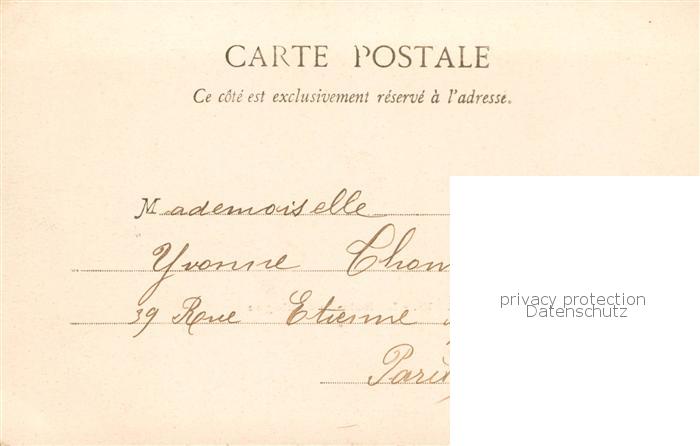 CARTE POSTALE
Ce côté est exclusivement réservé à l'adresse.
Mademoiselle
Yvonne
39 Rue Etienne
Paris
privacy protection
Datenschutz